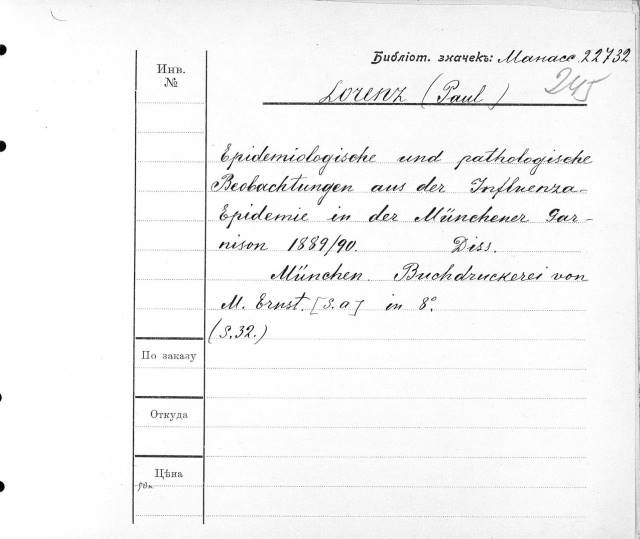 Библіот. значекъ: Манасс 22732
245
Инв.
№
Lorenz (Paul)
Epidemiologische und pathologische
Beobachtungen aus der Influenza-
Epidemie in der Münchener Gar-
nison 1889/90. Diss.
München. Buchdruckerei von
M. Ernst. [S.a] in 8°.
(S.32.)
По заказу
Откуда
Цѣна